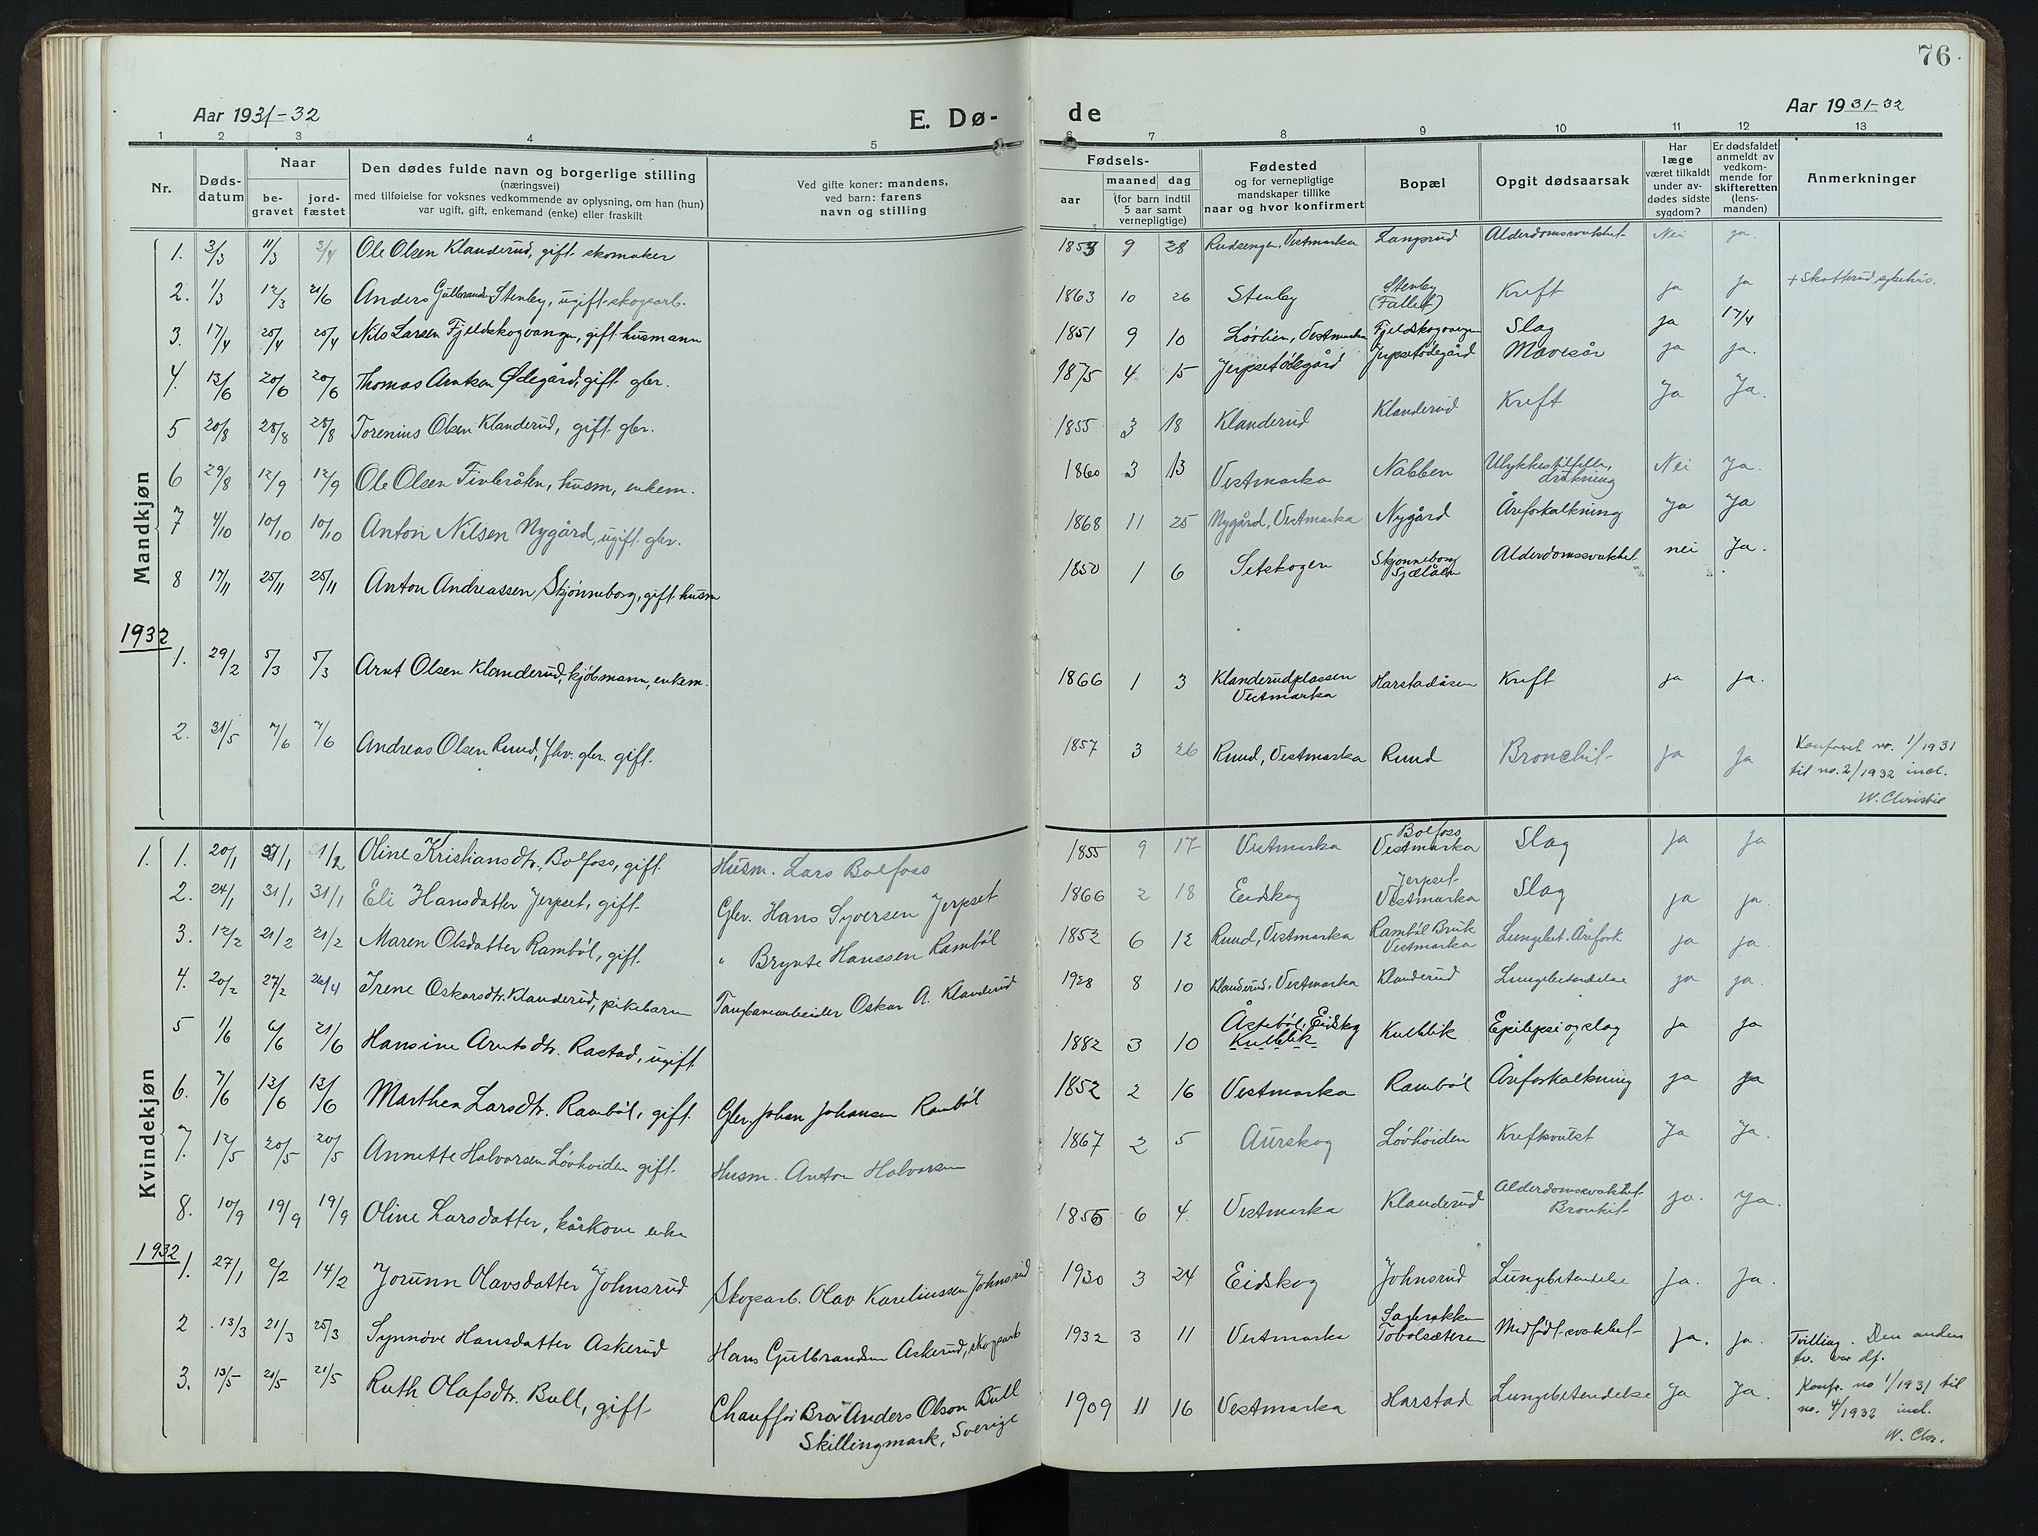 76
Aar 1931-32 E. Dø- de Aar 1931-32
1 2 3 4 5 6 7 8 9 10 11 12 13
Nr. Døds-datum Naar be-gravet jord-fæstet Den dødes fulde navn og borgerlige stilling (næringsvei) med tilføielse for voksnes vedkommende av oplysning, om han (hun) var ugift, gift, enkemand (enke) eller fraskilt Ved gifte koner: mandens, ved barn: farens navn og stilling Fødsels- aar maaned dag (for barn indtil 5 aar samt vernepligtige) Fødested og for vernepligtige mandskaper tillike naar og hvor konfirmert Bopæl Opgit dødsaarsak Har læge været tilkaldt under av-dødes sidste sygdom? Er dødsfaldet anmeldt av vedkom-mende for skifteretten (lens-manden) Anmerkninger
Mandkjøn
1. 3/3 11/3 3/4 Ole Olsen Klanderud, gift. skomaker 1853 9 28 Rudsengen, Vestmarka Langrud Alderdomssvakhet Nei ja.
2. 1/3 12/3 21/6 Anders Gulbrandsen Stenby, ugift skogsarb. 1863 10 26 Stenby Stenby (Fallet) Kreft ja ja + Skotterud sykehus.
3. 17/4 25/4 25/4 Nils Larsen Fjeldskogvangen, gift husmann 1851 9 10 Løvlien, Vestmarka Fjeldskogvangen Slag ja 17/4
4. 13/6 20/6 20/6 Thomas Arntsen Ødegård, gift gbr. 1875 4 15 Jerpsetødegård Jerpsetødegård Mavesår ja ja.
5 20/8 28/8 28/8 Torenius Olsen Klanderud, gift. gbr. 1855 3 18 Klanderud Klanderud Kreft Ja Ja.
6 29/8 12/9 12/9 Ole Olsen Finbråten, husm, enkem. 1860 3 13 Vestmarka Nabben Ulykkestilfelle, drukning Nei Ja.
7 4/10 10/10 10/10 Anton Nilsen Nygård, ugift. gbr. 1868 11 25 Nygård, Vestmarka Nygård Åreforkalkning Ja Ja
8 17/11 25/11 25/11 Anton Andreassen Skjønneborg, gift. husm 1850 1 6 Setskogen Skjønneborg Sjølåsen Alderdomssvakhet nei Ja.
1932
1. 29/2 5/3 5/3 Arnt Olsen Klanderud, kjøbmann, enkem. 1866 1 3 Klanderudplassen Vestmarka Harstadåsen Kreft ja ja.
2. 31/5 7/6 7/6 Andreas Olsen Ruud, fhv. gbr. gift. 1857 3 26 Ruud, Vestmarka Ruud Bronchit ja ja Konferert no. 1/1931
til no. 2/1932 incl.
W. Christie
Kvindekjøn
1. 1. 20/1 31/1 1/2 Oline Kristiansdtr. Bolfoss, gift. Husm. Lars Bolfoss 1855 9 17 Vestmarka Bolfoss Vestmarka Slag ja ja
2. 24/1 31/1 31/1 Eli Hansdatter Jerpset, gift. Gbr. Hans Syversen Jerpset 1866 2 18 Eidskog Jerpset Vestmarka Slag ja ja.
3. 12/2 21/2 21/2 Maren Olsdatter Rambøl, gift. " Brynte Hanssen Rambøl 1852 6 12 Ruud, Vestmarka Rambøl Bruk Vestmarka Lungebet. Årefork. ja ja.
4. 20/2 27/2 26/4 Irene Oskarsdtr. Klanderud, pikebarn Taugbanearbeider Oskar A. Klanderud 1928 8 10 Klanderud, Vestmarka Klanderud Lungebetendelse ja ja.
5 1/6 6/6 21/6 Hansine Arntsdtr. Rastad, ugift 1882 3 10 Åstebøl, Eidskog Kulblik Kulblik Epilepsi og slag ja ja
6. 7/6 13/6 13/6 Marthea Larsdtr. Rambøl, gift. Gbr. Johan Johansen Rambøl 1852 2 16 Vestmarka Rambøl Åreforkalkning ja ja
7. 12/5 20/5 20/5 Annette Halvorsen Løvhøiden gift. Husm. Anton Halvorsen 1867 2 5 Aurskog Løvhøiden Kreftsvulst Ja Ja.
8. 10/9 19/9 19/9 Oline Larsdatter, kårkone enke 1856 6 4. Vestmarka Klanderud Alderdomssvakhet Bronkit ja. Ja.
1932
1. 27/1 2/2 14/2 Jorunn Olavsdatter Johnsrud Skogsarb. Olav Kareliussen Johnsrud 1930 3 24 Eidskog Johnsrud Lungebetendelse Ja. Ja.
2 13/3 21/3 25/3 Synnøve Hansdatter Askerud Hans Gulbrandsen Askerud, skogsarb 1932 3 11 Vestmarka Tobolsæteren Medfødt svakhet ja. Ja. Tvilling. Den anden
tv. var df.
3. 13/5 21/5 21/5 Ruth Olafsdtr. Bull, gift Chauffør Bror Anders Olson Bull Skillingmark, Sverige 1909 11 16 Vestmarka Harstad Lungebetendelse Ja Ja. Konfr. no 1/1931 til
no. 4/1932 incl.
W. Chr.